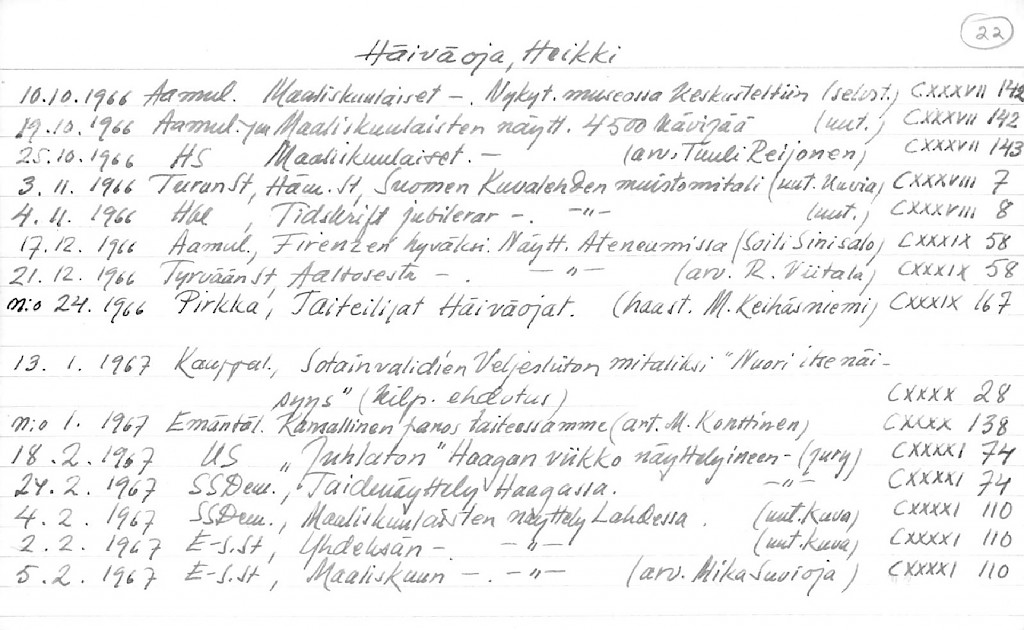 22
Häiväoja, Heikki
10.10.1966 Aamul. Maaliskuulaiset -. Nykyt. museossa keskusteltiin (selost.) CXXXVII 142
19.10.1966 Aamul. ym Maaliskuulaisten näytt. 4500 kävijää (uut.) CXXXVII 142
25.10.1966 HS Maaliskuulaiset. - (arv. Tuuli Reijonen) CXXXVII 143
3.11.1966 TurunSt, Häm. St, Suomen Kuvalehden muistomitali (uut. kuvia) CXXXVIII 7
4.11.1966 Hbl, Tidskrift jubilerar -. -"- (uut.) CXXXVIII 8
17.12.1966 Aamul., Firenzen hyväksi. Näytt. Ateneumissa (Soili Sinisalo) CXXXIX 58
21.12.1966 TyrväänSt, Aaltosesta -. -"- (arv. R. Viitala) CXXXIX 58
n:o 24.1966 Pirkka, Taiteilijat Häiväojat. (haast. M. Keihäsniemi) CXXXIX 167
13.1.1967 Kauppal., Sotainvalidien Veljesliiton mitaliksi "Nuori itsenäi-
syys" (kilp. ehdotus) CXXXX 28
n:o 1.1967 Emäntäl. Kansallinen panos taiteessamme (art. M. Konttinen) CXXXX 138
18.2.1967 US "Juhlaton" Haagan viikko näyttelyineen - (jury) CXXXXI 74
24.2.1967 SSDem., Taidenäyttely Haagassa. -"- CXXXXI 74
4.2.1967 SSDem., Maaliskuulaisten näyttely Lahdessa. (uut. kuva) CXXXXI 110
2.2.1967 E-S.St, Yhdeksän -. -"- (uut. kuva) CXXXXI 110
5.2.1967 E-S.St, Maaliskuun -. -"- (arv. Mika Suvioja) CXXXXI 110